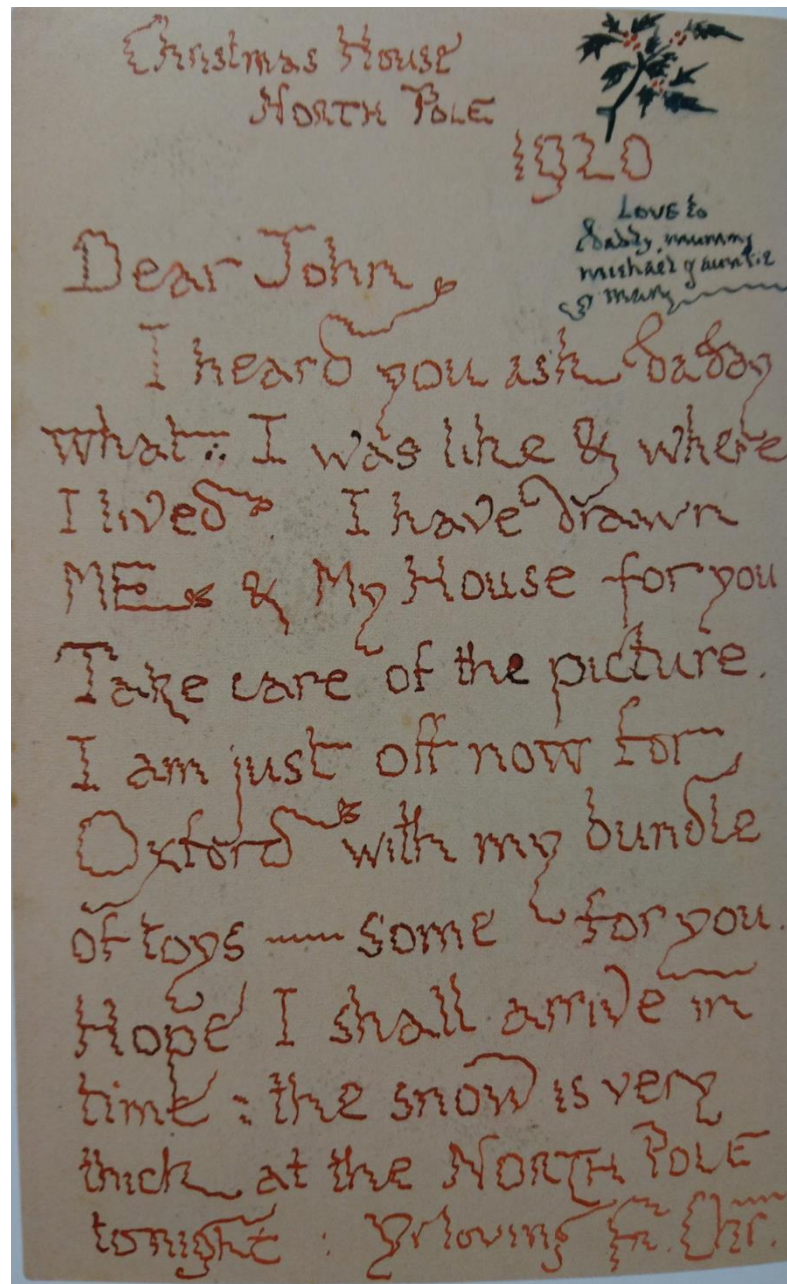 Christmas House
NORTH POLE
1920
Love to
daddy, mummy
michael & auntie
mary
Dear John
I heard you ask daddy
what I was like & where
I lived I have drawn
ME & My House for you
Take care of the picture.
I am just off now for
Oxford with my bundle
of toys — some for you.
Hope I shall arrive in
time : the snow is very
thick at the NORTH POLE
tonight : Yr loving Fr. Chr.